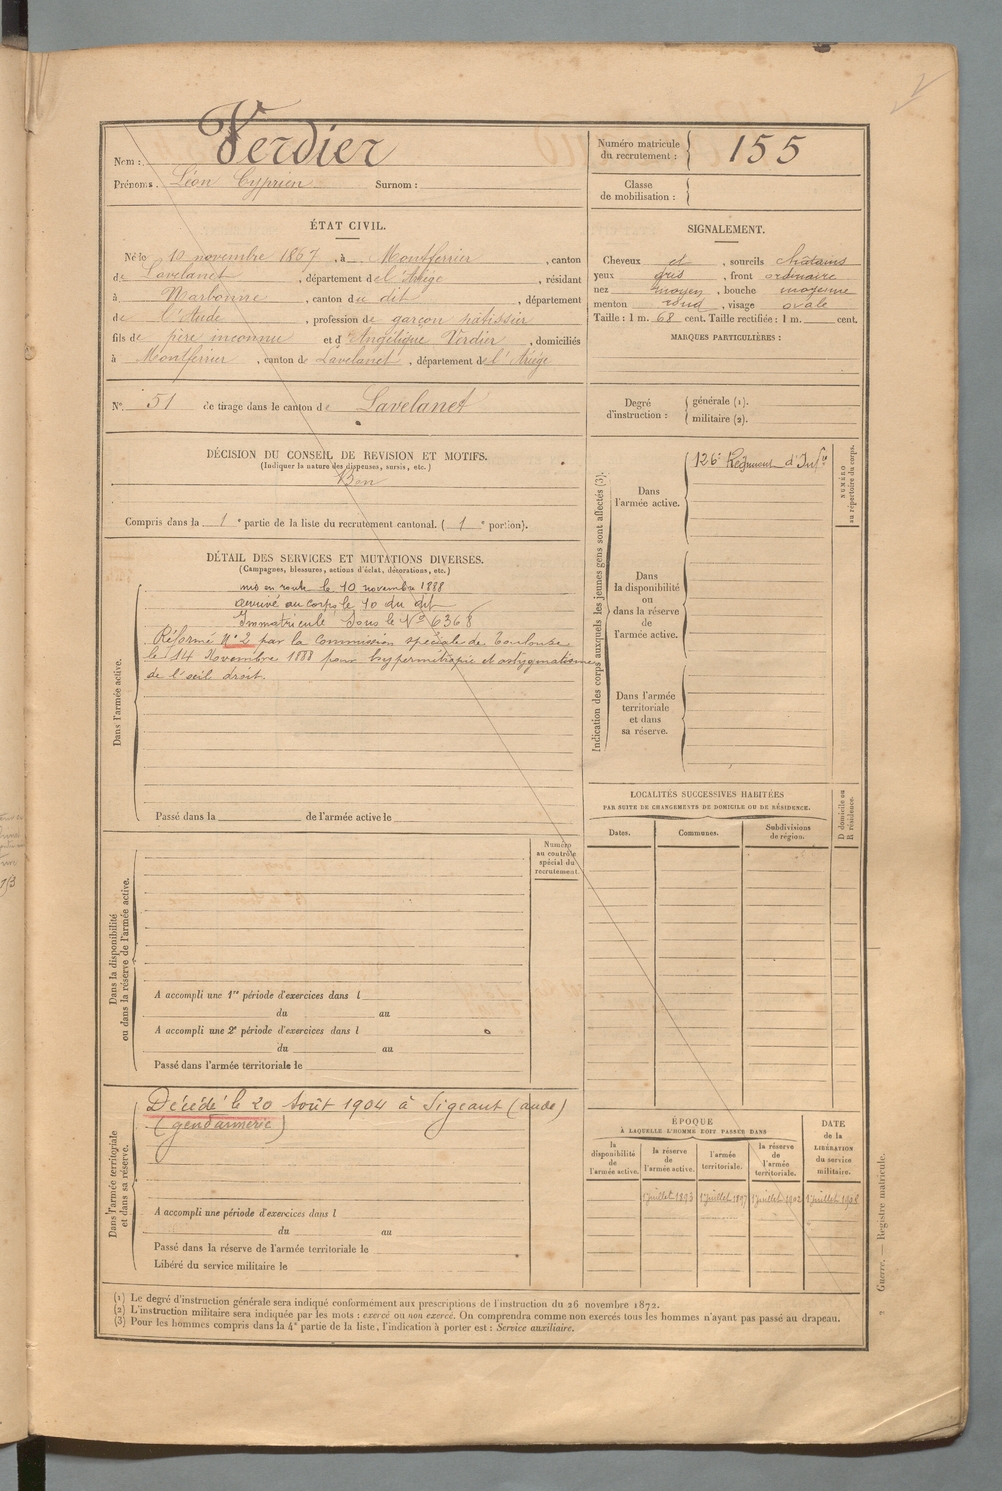 Verdier
Nom :
Prénoms : Léon Cyprien Surnom :
Numéro matricule
du recrutement : 155
Classe
de mobilisation :
ÉTAT CIVIL.
Né le 10 novembre 1867, à Montferrier, canton
de Lavelanet, département de l'Ariège, résidant
à Narbonne, canton du dit, département
de l'Aude, profession de garçon pâtissier
fils de père inconnu et d'Angélique Verdier, domiciliés
à Montferrier, canton de Lavelanet, département de l'Ariège
SIGNALEMENT.
Cheveux et, sourcils châtains
yeux gris, front ordinaire
nez moyen, bouche moyenne
menton rond, visage ovale
Taille : 1 m. 68 cent. Taille rectifiée : 1 m. cent.
MARQUES PARTICULIÈRES :
N° 51 de tirage dans le canton de Lavelanet
Degré
d'instruction :
générale (1).
militaire (2).
DÉCISION DU CONSEIL DE REVISION ET MOTIFS.
(Indiquer la nature des dispenses, sursis, etc.)
Bon
Compris dans la 1e partie de la liste du recrutement cantonal. ( 1e portion).
DÉTAIL DES SERVICES ET MUTATIONS DIVERSES.
(Campagnes, blessures, actions d'éclat, décorations, etc.)
Dans l'armée active.
mis en route le 10 novembre 1888
arrivé au corps le 10 du dit
Immatriculé sous le N° 6368
Réformé N° 2 par la Commission spéciale de Toulouse
le 14 Novembre 1888 pour hypermétropie et astygmatisme
de l'œil droit.
Passé dans la de l'armée active le
Indication des corps auxquels les jeunes gens sont affectés (3).
Dans
l'armée active.
126e Régiment d'Infie
Dans
la disponibilité
ou
dans la réserve
de
l'armée active.
Dans l'armée
territoriale
et dans
sa réserve.
NUMÉRO
au répertoire du corps.
LOCALITÉS SUCCESSIVES HABITÉES
PAR SUITE DE CHANGEMENTS DE DOMICILE OU DE RÉSIDENCE.
Dates. Communes. Subdivisions
de région.
D domicile ou
R résidence.
Dans la disponibilité
ou dans la réserve de l'armée active.
Numéro
au contrôle
spécial du
recrutement.
A accompli une 1re période d'exercices dans l
du au
A accompli une 2e période d'exercices dans l
du au
Passé dans l'armée territoriale le
Dans l'armée territoriale
et dans sa réserve.
Décédé le 20 Août 1904 à Sigeant (aude)
(gendarmerie)
A accompli une période d'exercices dans l
du au
Passé dans la réserve de l'armée territoriale le
Libéré du service militaire le
ÉPOQUE
À LAQUELLE L'HOMME DOIT PASSER DANS
la
disponibilité
de
l'armée active.
la réserve
de
l'armée active.
l'armée
territoriale.
la réserve
de
l'armée
territoriale.
DATE
de la
LIBÉRATION
du service
militaire.
1 juillet 1893 1 juillet 1897 1 juillet 1902 1 juillet 1908
(1) Le degré d'instruction générale sera indiqué conformément aux prescriptions de l'instruction du 26 novembre 1872.
(2) L'instruction militaire sera indiquée par les mots : exercé ou non exercé. On comprendra comme non exercés tous les hommes n'ayant pas passé au drapeau.
(3) Pour les hommes compris dans la 4e partie de la liste, l'indication à porter est : Service auxiliaire.
2 Guerre. — Registre matricule.